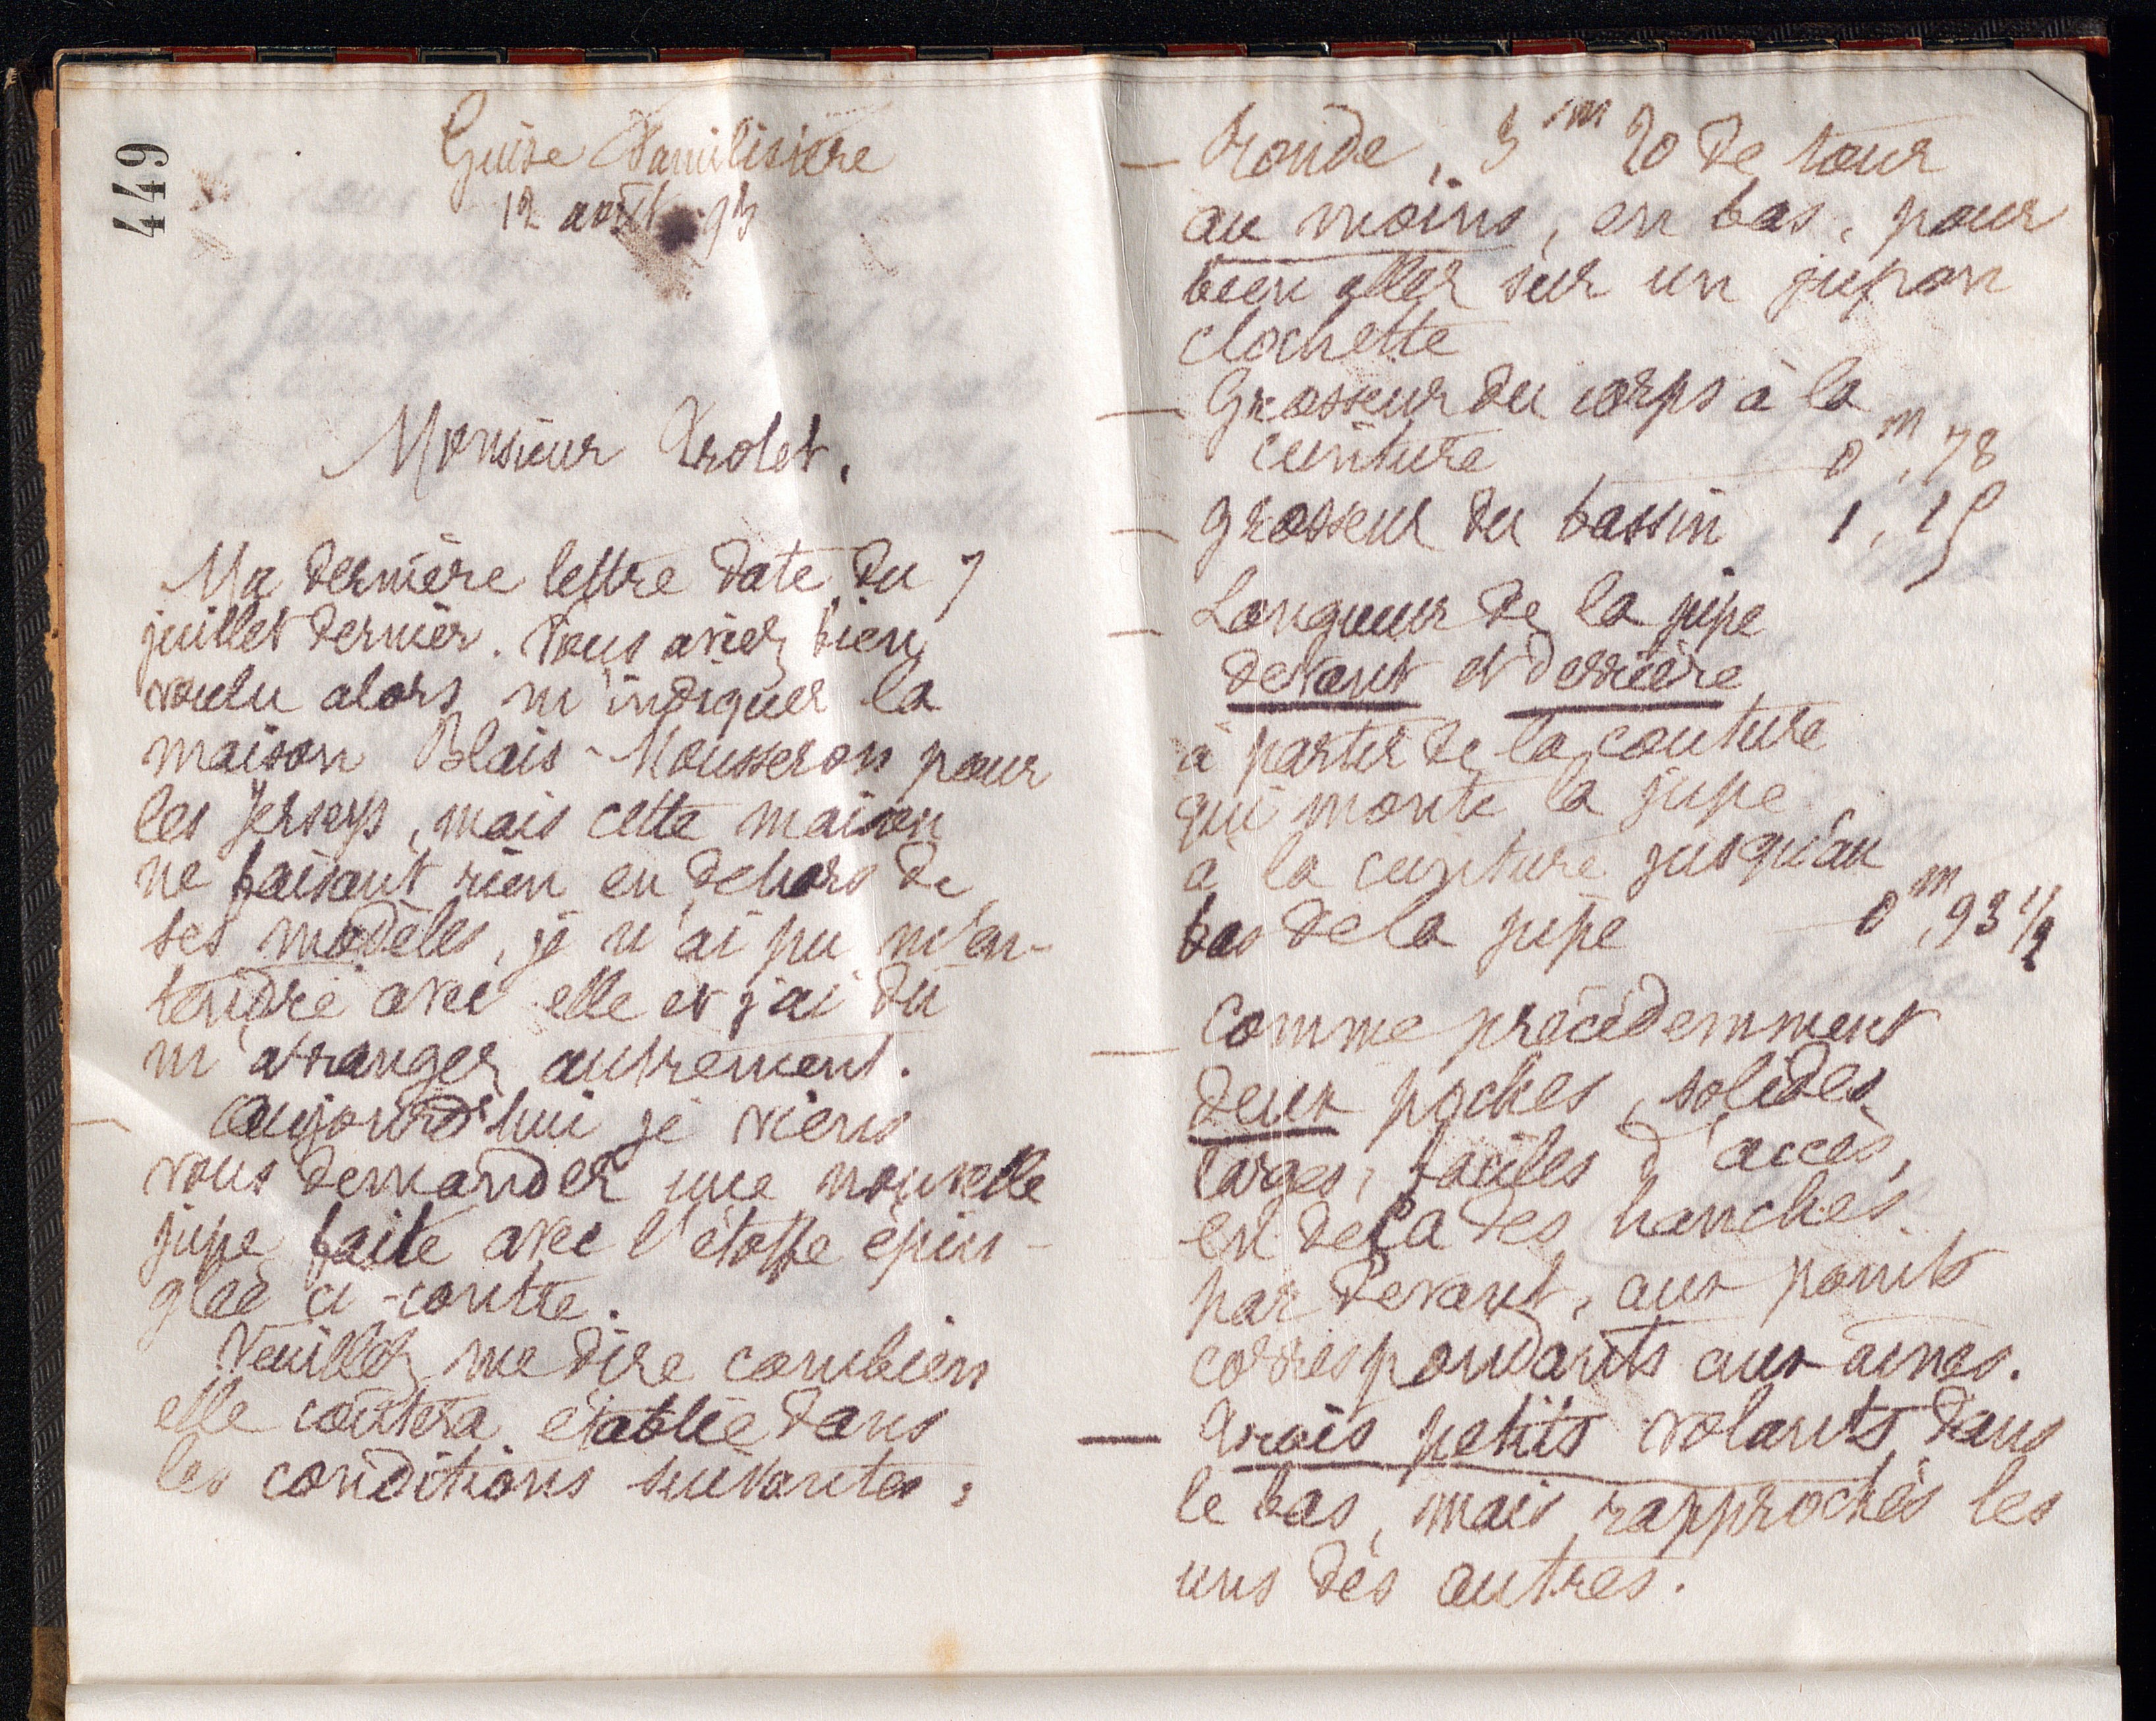 449
Guise Familistère
12 août 93
Monsieur Trolet,
Ma dernière lettre date du 7
juillet dernier. Vous aviez bien
voulu alors m'indiquer la
maison Blais-Mousseron pour
les Jerseys, mais cette maison
ne faisant rien en dehors de
ses modèles, je n'ai pu m'en-
tendre avec elle et j'ai dû
m'arranger autrement.
aujourd'hui je viens
vous demander une nouvelle
jupe faite avec l'étoffe épin-
glée ci-contre.
Veuillez me dire combien
elle coûtera établie dans
les conditions suivantes :
— ronde, 3 m 20 de tour
au moins, en bas, pour
bien aller sur un jupon
clochette
— Grosseur du corps à la
ceinture 0 m, 78
— grosseur du bassin 1, 15
— Longueur de la jupe
devant et derrière,
à partir de la couture
qui monte la jupe
à la ceinture jusqu'au
bas de la jupe 0 m, 93 1/2
— Comme précédemment
deux poches, solides,
larges, faciles d'accès,
en deça des hanches
par devant, aux points
correspondants aux aines.
— Trois petits volants dans
le bas, mais rapprochés les
uns des autres.